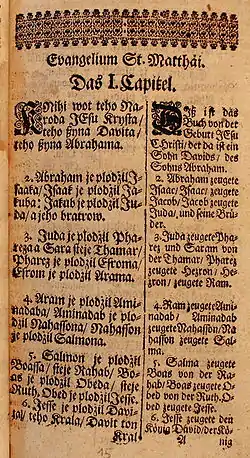 Evangelium St. Matthäi.
Das I. Capitel.
Knihi wot teho Na-
roda JEsu Krysta/
teho ßyna Davita/
teho ßyna Abrahama.
2. Abraham je plodżil J-
saaka/ Jsaak je plodżil Ja-
kuba: Jakub je plodżil Ju-
da/ a jeho bratrow.
3. Juda je plodżil Pha-
reza a Sara steje Thamar/
Pharez je plodżil Esroma/
Esrom je plodżil Arama.
4. Aram je plodżil Ami-
nadaba/ Aminadab je plo-
dżil Nahassona/ Nahasson
je plodżil Salmona.
5. Salmon je plodżil
Boassa/ steje Rahab/ Bo-
as je plodżil Obeda/ steje
Ruth/ Obed je plodżil Jesse.
6. Jesse je plodżil Davi-
ta/ teho Krala/ Davit ton
Kral
DIß ist das
Buch von der
Geburt JEsu
Christi/ der da ist ein
Sohn Davids/ des
Sohns Abraham.
2. Abraham zeugete
Isaac/ Isaac zeugete
Jacob/ Jacob zeugete
Juda/ und seine Brü-
der.
3. Juda zeugete Pha-
rez und Saram von
der Thamar/ Pharez
zeugete Hezron/ Hez-
ron/ zeugete Ram.
4. Ram zeugete Ami-
nadab/ Aminadab
zeugete Nahasson/ Na-
hasson zeugete Sal-
ma.
5. Salma zeugete
Boas von der Ra-
hab/ Boas zeugete O-
bed von der Ruth. O-
bed zeugete Jesse.
6. Jesse zeugete den
König David/ der Kö-
A nig
15